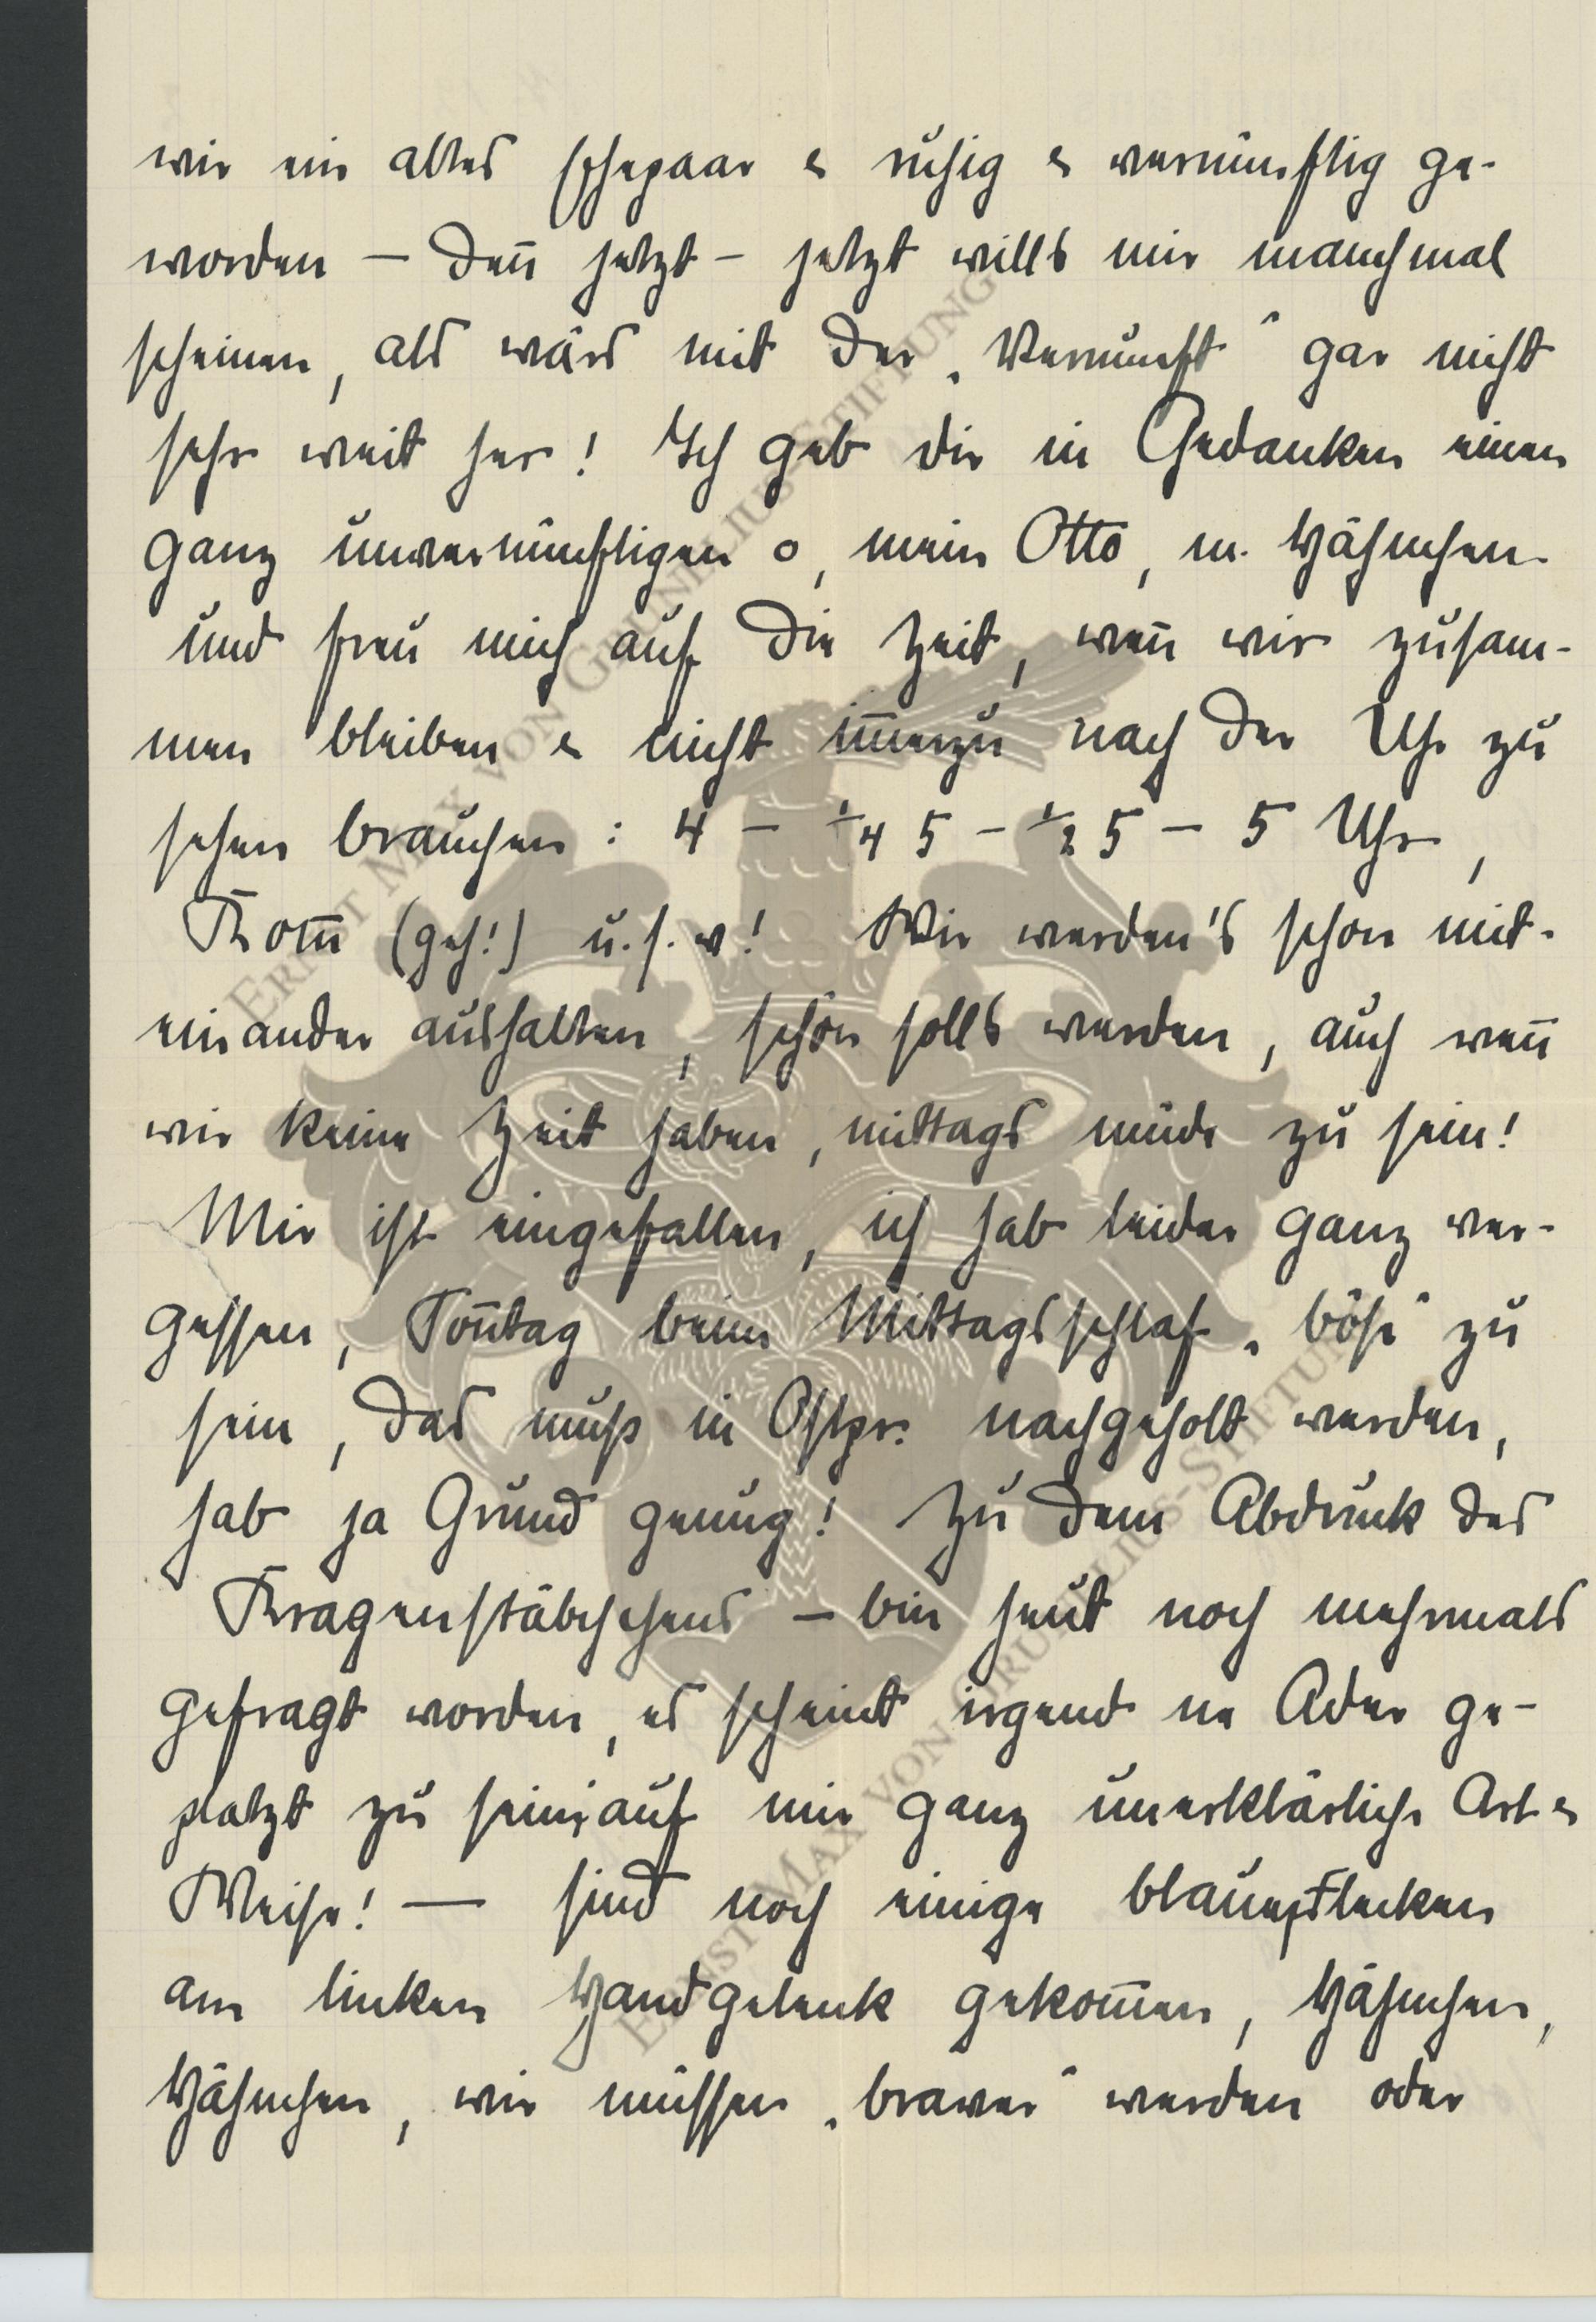 wie ein altes Ehepaar & ruhig & vernünftig ge-
worden – deñ jetzt – jetzt wills mir manchmal
scheinen, als wärs mit der „Vernunft" gar nicht
sehr weit her! Ich geb dir in Gedanken einen
ganz unvernünftigen o, mein Otto, m. Hähnchen
und freu mich auf die Zeit, weñ wir zusam-
men bleiben & nicht im̄erzu nach der Uhr zu
sehen brauchen: 4 – ¼ 5 – ½ 5 – 5 Uhr,
Kom̄ (geh!) u. s. w! Wir werden's schon mit-
einander aushalten, schön solls werden, auch weñ
wir keine Zeit haben, mittags müde zu sein!
Mir ist eingefallen, ich hab leider ganz ver-
gessen, Soñtag beim Mittagsschlaf „böse" zu
sein, das muß in Ostpr. nachgeholt werden,
hab ja Grund genug! Zu dem Abdruck des
Kragenstäbchens – bin heut noch mehrmals
gefragt worden, es scheint irgend ne Ader ge-
platzt zu sein, auf mir ganz unerklärliche Art &
Weise! — sind noch einige blaue Flecken
am linken Handgelenk gekom̄en, Hähnchen,
Hähnchen, wir müssen „braver" werden oder
ERNST MAX VON GRUNELIUS-STIFTUNG
ERNST MAX VON GRUNELIUS-STIFTUNG